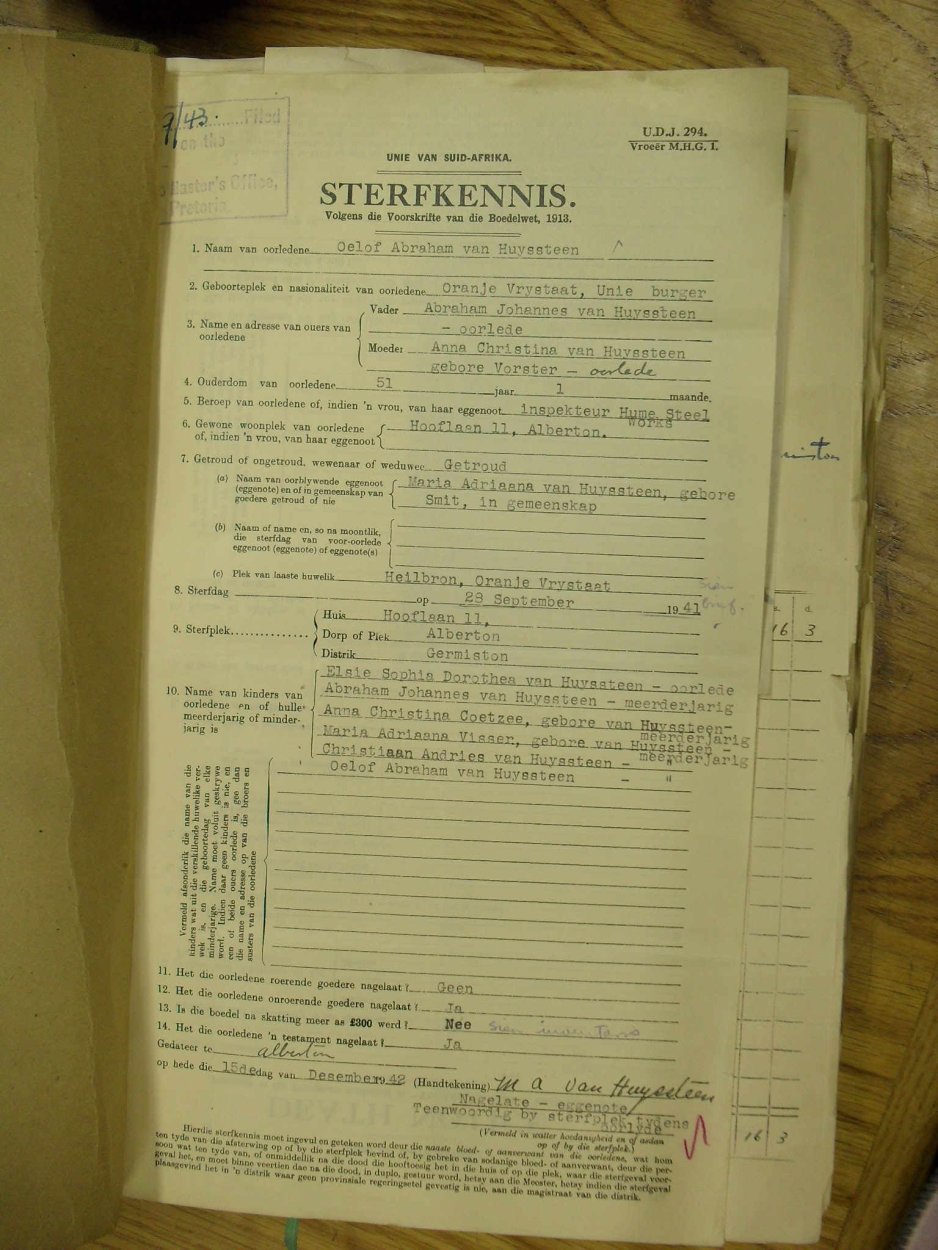 7/43.
Filed
on the
Master's Office,
Pretoria
U.D.J. 294.
Vroeër M.H.G. 1.
UNIE VAN SUID-AFRIKA.
STERFKENNIS.
Volgens die Voorskrifte van die Boedelwet, 1913.
1. Naam van oorledene Oelof Abraham van Huyssteen
2. Geboorteplek en nasionaliteit van oorledene Oranje Vrystaat, Unie burger
3. Name en adresse van ouers van oorledene
Vader Abraham Johannes van Huyssteen
- oorlede
Moeder Anna Christina van Huyssteen
gebore Vorster - oorlede
4. Ouderdom van oorledene 51 jaar 1 maande.
5. Beroep van oorledene of, indien 'n vrou, van haar eggenoot inspekteur Hume Steel
Works
6. Gewone woonplek van oorledene Hooflaan 11, Alberton.
of, indien 'n vrou, van haar eggenoot
7. Getroud of ongetroud, wewenaar of weduwee Getroud
(a) Naam van oorblywende eggenoot Maria Adriaana van Huyssteen, gebore
(eggenote) en of in gemeenskap van Smit, in gemeenskap
goedere getroud of nie
(b) Naam of name en, so na moontlik,
die sterfdag van voor-oorlede
eggenoot (eggenote) of eggenote(s)
(c) Plek van laaste huwelik Heilbron, Oranje Vrystaat
8. Sterfdag op 29 September 1941
9. Sterfplek
Huis Hooflaan 11,
Dorp of Plek Alberton
Distrik Germiston
10. Name van kinders van
oorledene en of hulle
meerderjarig of minder-
jarig is
Elsie Sophia Dorothea van Huyssteen - oorlede
Abraham Johannes van Huyssteen - meerderjarig
Anna Christina Coetzee, gebore van Huyssteen-
meerderjarig
Maria Adriaana Visser, gebore van Huyssteen -
meerderjarig
Christiaan Andries van Huyssteen - "
Oelof Abraham van Huyssteen - "
Vermeld afsonderlik die name van die
kinders wat uit die verskillende huwelike ver-
wek is, en die geboortedag van elke
minderjarige. Name moet voluit geskrywe
word. Indien daar geen kinders is nie, en
een of beide ouers oorlede is, gee dan
die name en adresse op van die broers en
susters van die oorledene
11. Het die oorledene roerende goedere nagelaat? Geen
12. Het die oorledene onroerende goedere nagelaat? Ja
13. Is die boedel na skatting meer as £300 werd? Nee
14. Het die oorledene 'n testament nagelaat? Ja
Gedateer te alberton
op hede die 15de dag van Desember 1942 (Handtekening) M A van Huyssteen
Nagelate - eggenote
Teenwoordig by sterfplek tydens
oorlyde
(Vermeld in watter hoedanigheid en of aldan
op of by die sterfplek.)
Hierdie sterfkennis moet ingevul en geteken word deur die naaste bloed- of aanverwant van die oorledene, wat hom
ten tyde van die afsterwing op of by die sterfplek bevind of, by gebreke van sodanige bloed- of aanverwant, deur die per-
soon wat ten tyde van, of onmiddellik na die dood die hooftoesig het in die huis of op die plek, waar die sterfgeval voor-
geval het, en moet binne veertien dae na die dood, in duplo, gestuur word, hetsy aan die Meester, hetsy indien die sterfgeval
plaasgevind het in 'n distrik waar geen provinsiale regeringsetel gevestig is nie, aan die magistraat van die distrik.
16 3
16 3